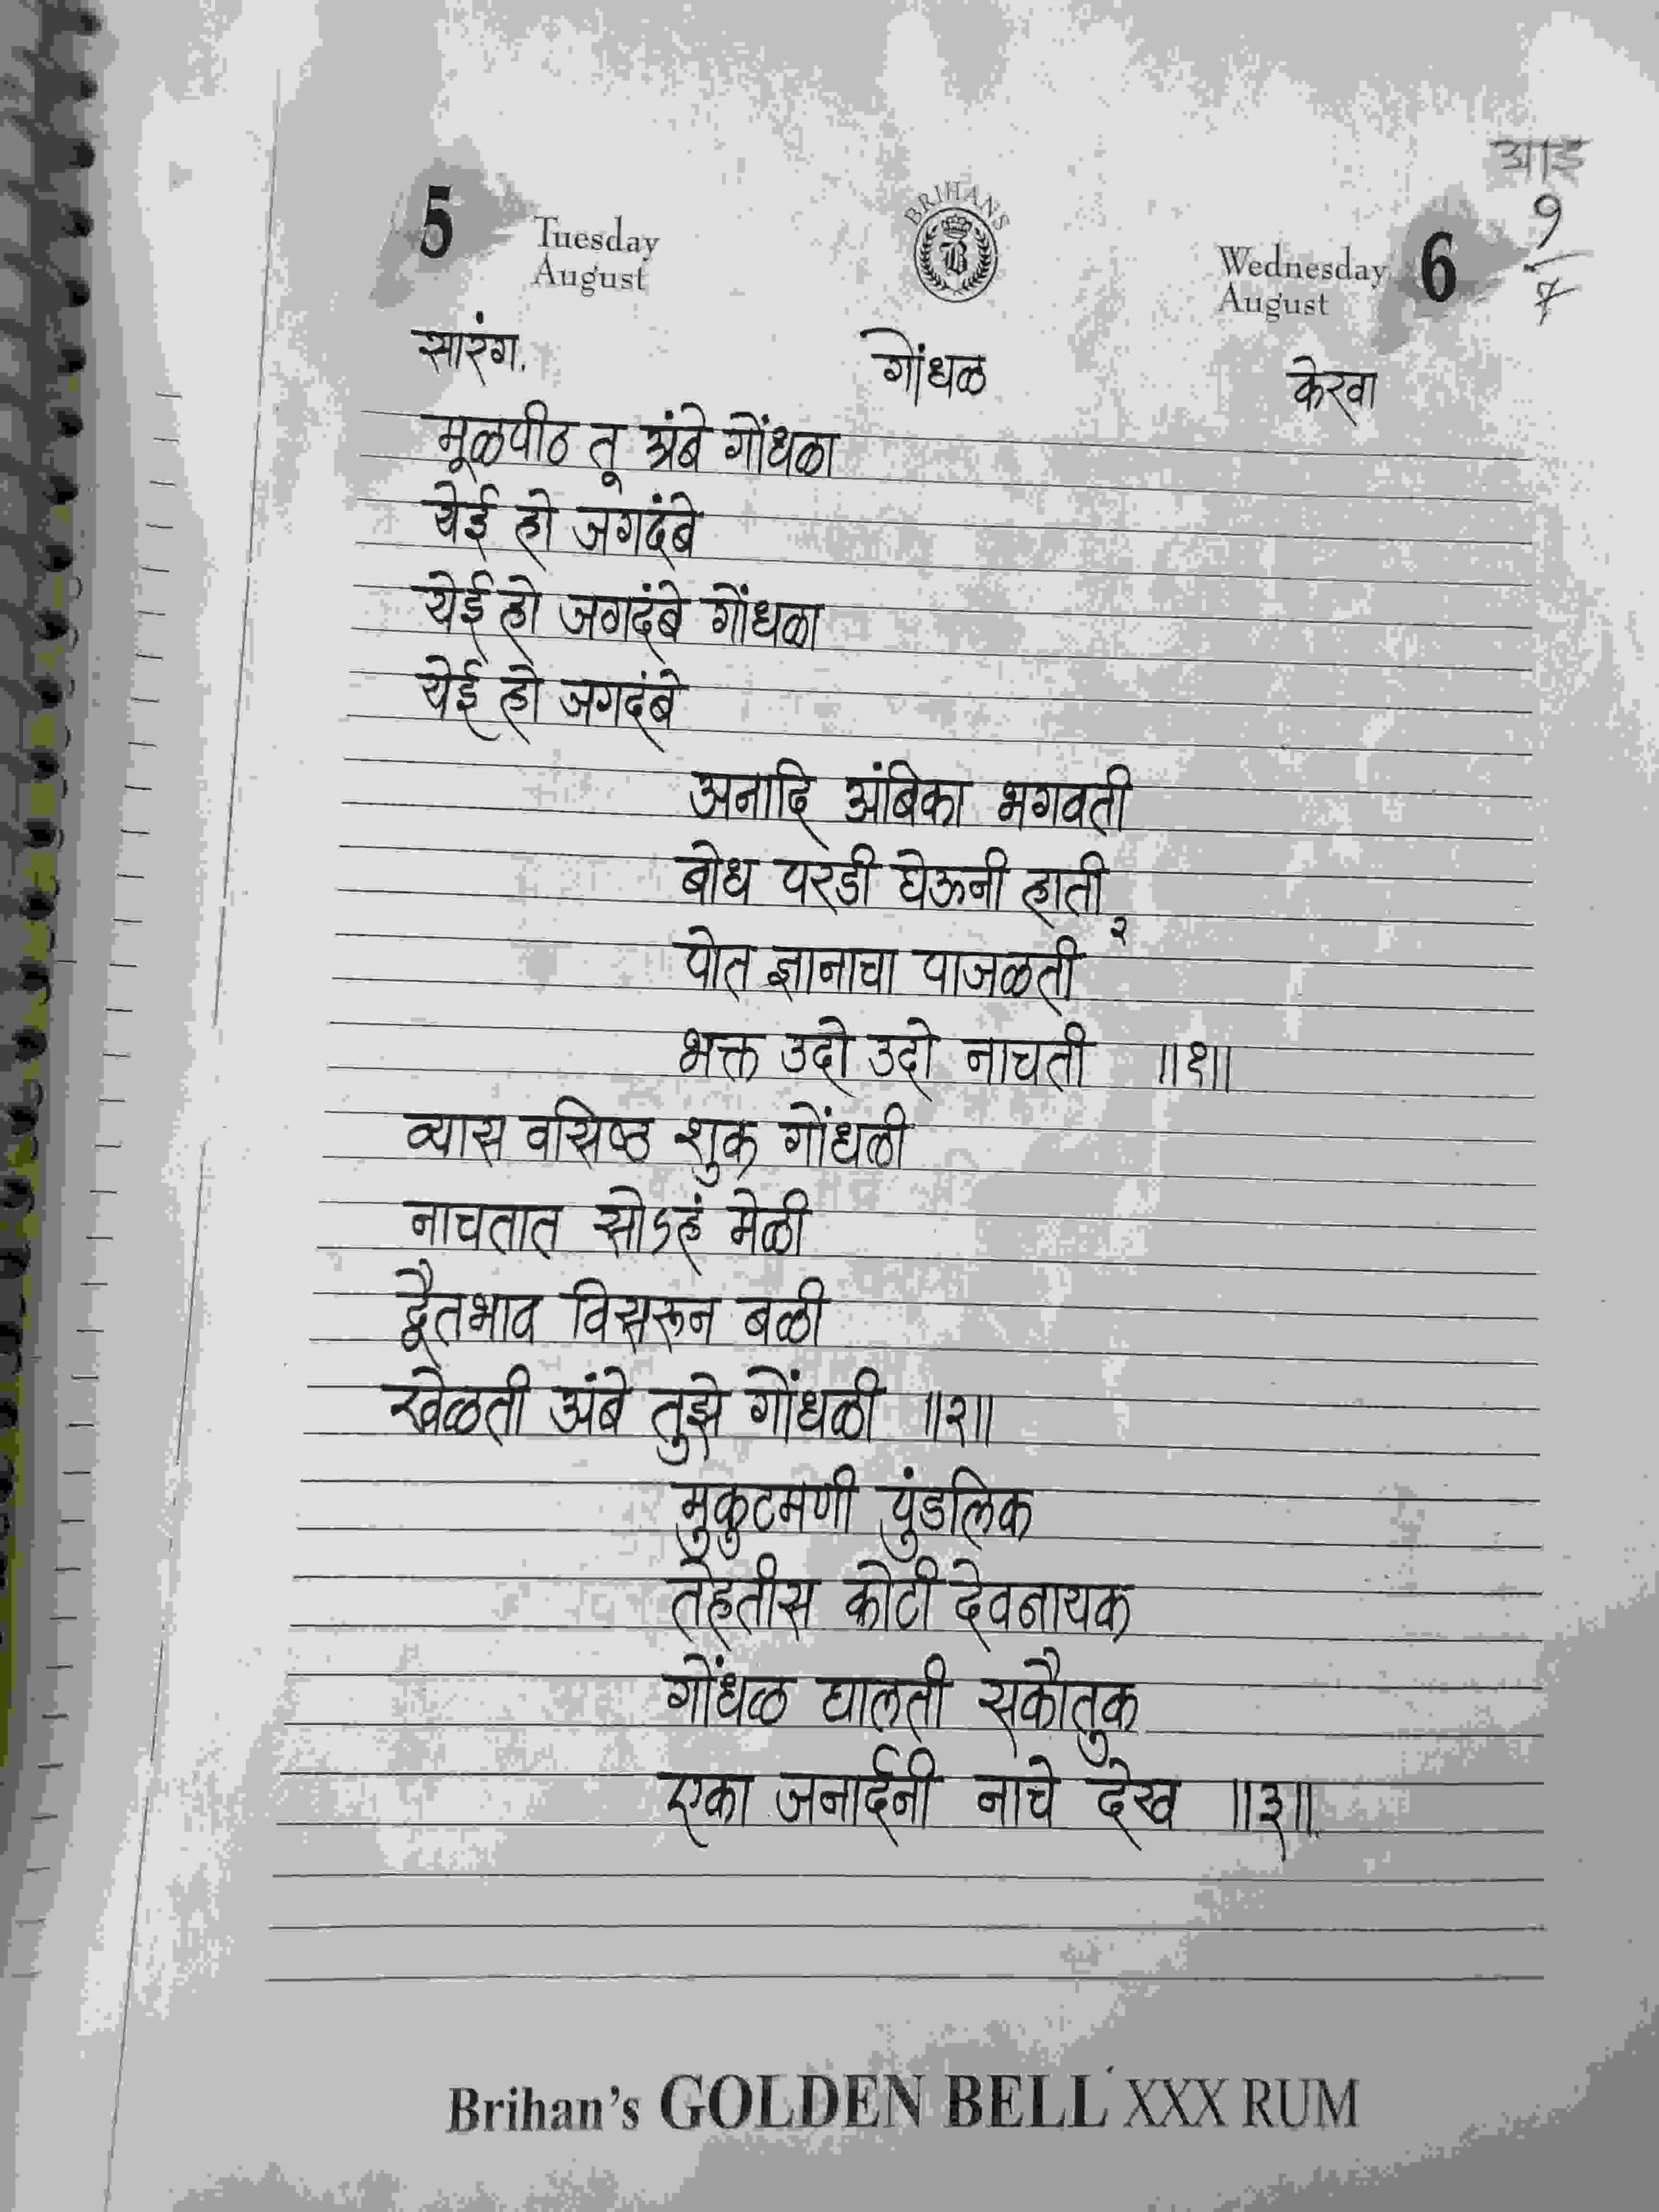 आइ
9
7
5 Tuesday August
BRIHANS
B
Wednesday August 6
सारंग. गोंधळ केरवा
मूळपीठ तू अंबे गोंधळा
येई हो जगदंबे
येई हो जगदंबे गोंधळा
येई हो जगदंबे
अनादि अंबिका भगवती
बोध परडी घेऊनी हाती
२
पोत ज्ञानाचा पाजळती
भक्त उदो उदो नाचती ॥१॥
व्यास वसिष्ठ शुक्र गोंधळी
नाचतात सोऽहं मेळी
द्वैतभाव विसरून बळी
खेळती अंबे तुझे गोंधळी ॥२॥
मुकुटमणी पुंडलिक
तेहतीस कोटी देवनायक
गोंधळ घालती सकौतुक
एका जनार्दनी नाचे देख ॥३॥.
Brihan's GOLDEN BELL XXX RUM